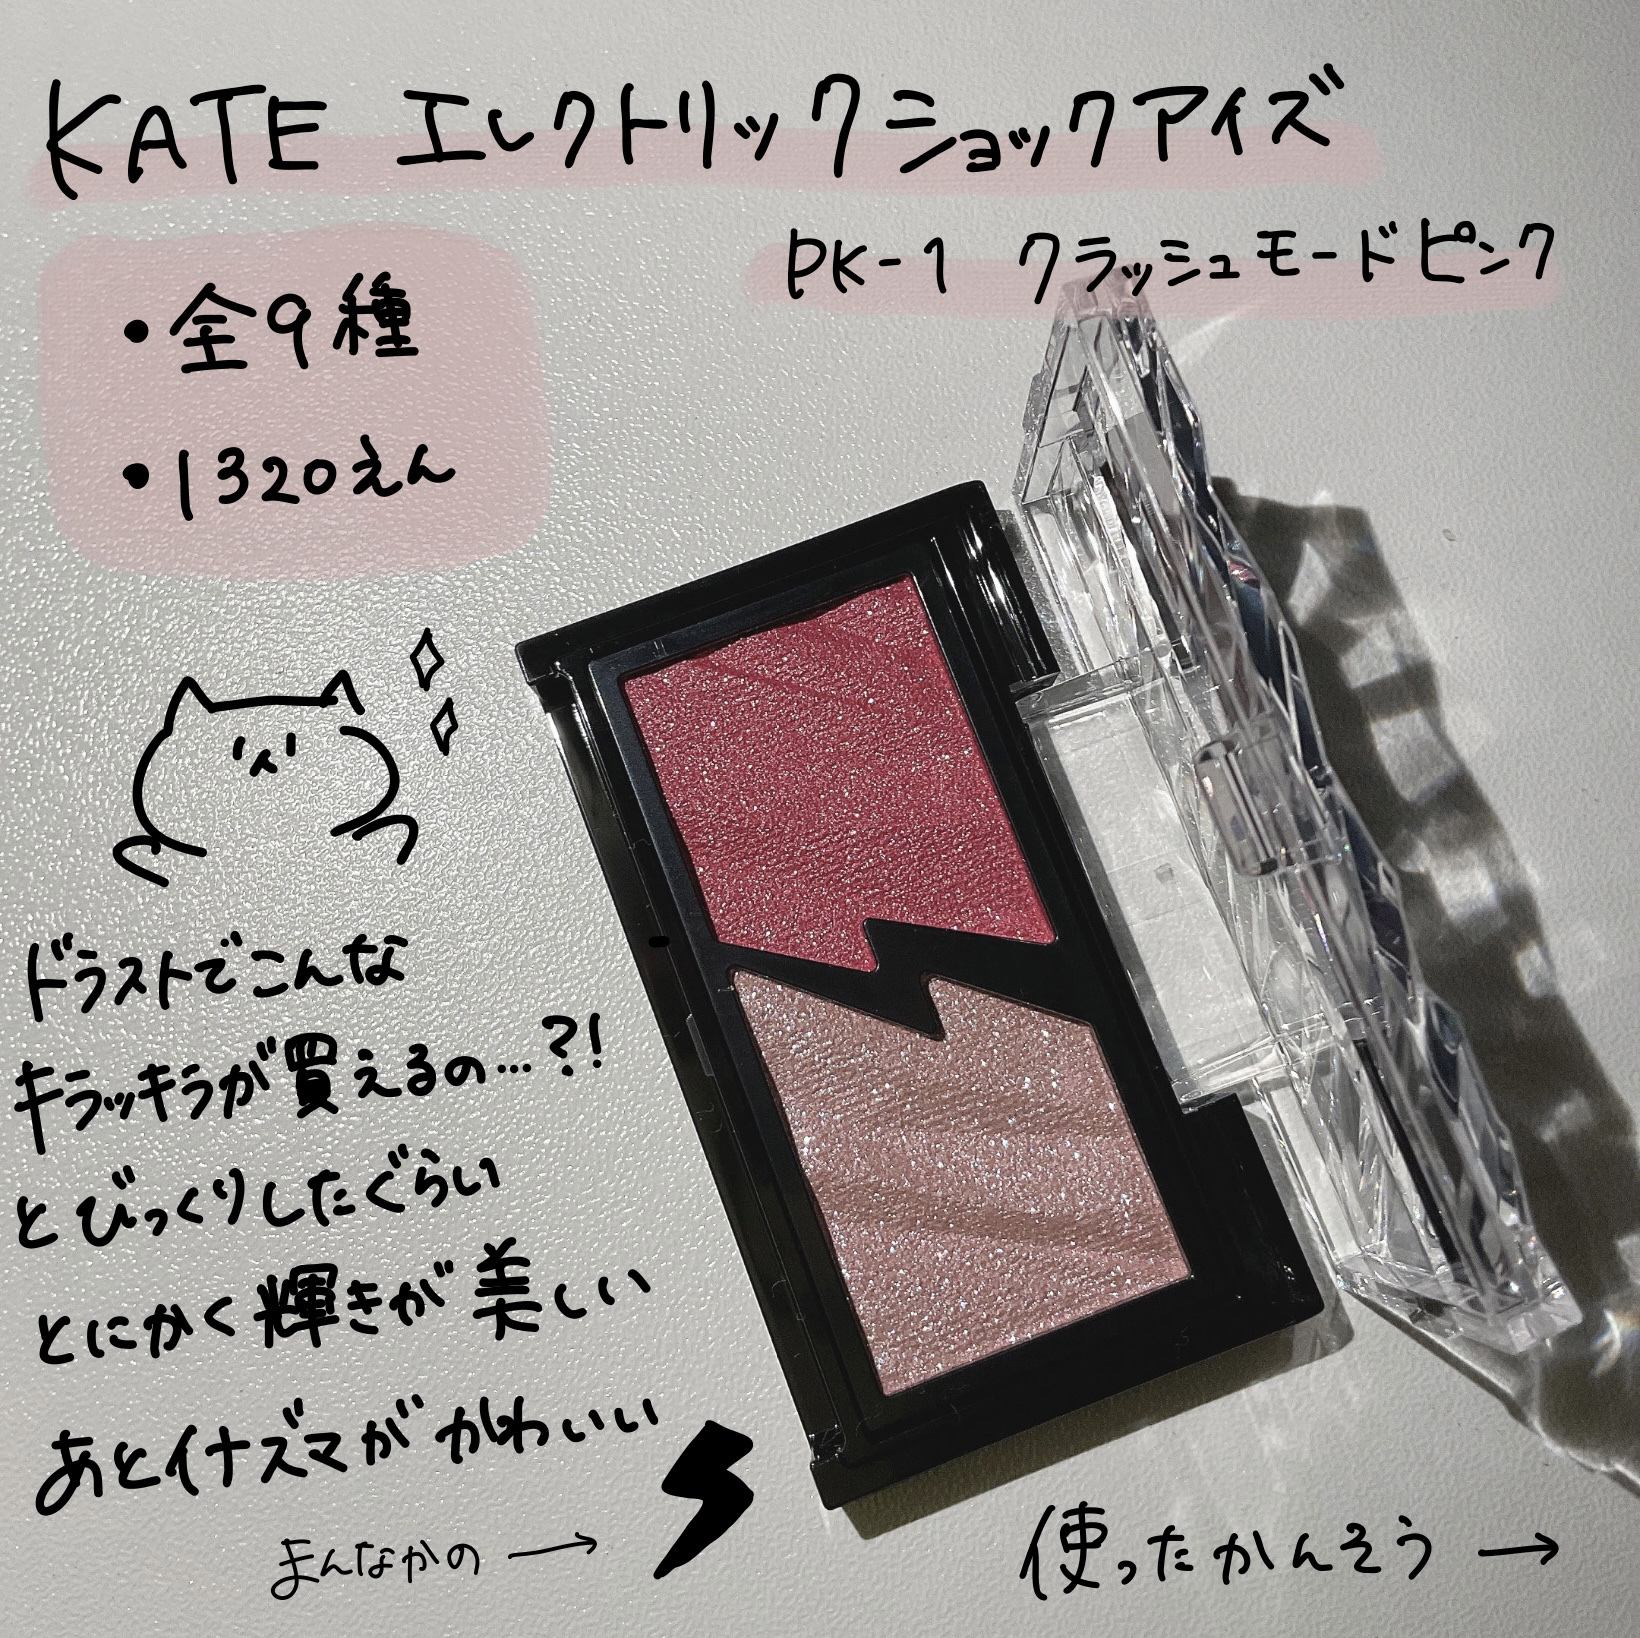 KATE エレクトリックショックアイズ
PK-1 クラッシュモードピンク
・全9種
・1320えん
ドラストでこんな
キラッキラが買えるの…?!
とびっくりしたぐらい
とにかく輝きが美しい
あとイナズマがかわいい
まんなかの →
使ったかんそう →